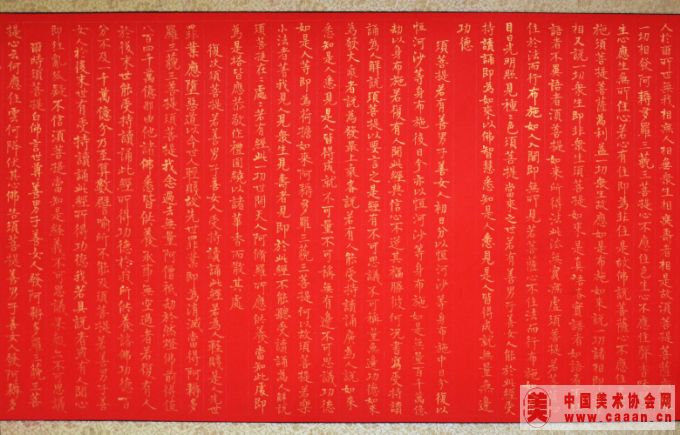 人於爾所世無我相無人相無眾生相無壽者相是故須菩提菩薩
一切相發阿耨多羅三藐三菩提心不應住色生心不應住聲香
生心應生無所住心若心有住即為非住是故佛說菩薩心不應住
施須菩提菩薩為利益一切眾生故應如是布施如來說一切諸相即
相又說一切眾生即非眾生須菩提如來是真語者實語者如語者
語者不異語者須菩提如來所得法此法無實無虛須菩提
住於法而行布施如人入闇即無所見若菩薩心不住法而行布施
目日光明照見種種色須菩提當來之世若有善男子善女人能於此經受
持讀誦即為如來以佛智慧悉知是人悉見是人皆得成就無量無邊
功德
須菩提若有善男子善女人初日分以恒河沙等身布施中日分復以
恒河沙等身布施後日分亦以恒河沙等身布施如是無量百千萬億
劫以身布施若復有人聞此經典信心不逆其福勝彼何況書寫受持讀
誦為人解說須菩提以要言之是經有不可思議不可稱量無邊功德如來
為發大乘者說為發最上乘者說若有人能受持讀誦廣為人說如來
悉知是人悉見是人皆得成就不可量不可稱無有邊不可思議功德
如是人等即為荷擔如來阿耨多羅三藐三菩提何以故須菩提若樂
小法者著我見人見眾生見壽者見即於此經不能聽受讀誦為人解說
須菩提在在處處若有此經一切世間天人阿修羅所應供養當知此處即
為是塔皆應恭敬作禮圍繞以諸華香而散其處
復次須菩提善男子善女人受持讀誦此經若為人輕賤是人先世
罪業應墮惡道以今世人輕賤故先世罪業即為消滅當得阿耨多
羅三藐三菩提須菩提我念過去無量阿僧祇劫於然燈佛前得值
八百四千萬億那由他諸佛悉皆供養承事無空過者若復有人
於後末世能受持讀誦此經所得功德於我所供養諸佛功德百
分不及一千萬億分乃至算數譬喻所不能及須菩提若善男子善
女人於後末世有受持讀誦此經所得功德我若具說者或有人聞
即狂亂狐疑不信須菩提當知是經義不可思議果報亦不可思議
爾時須菩提白佛言世尊善男子善女人發阿耨多羅三藐三菩
提心云何應住云何降伏其心佛告須菩提善男子善女人發阿耨多
美 中国美术协会网
www.caaan.cn